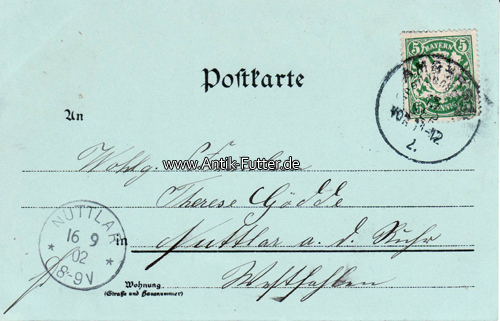 5 BAYERN 5
Postkarte
An
Wohlg. Fräulein
www.Antik-Futter.de
Therese Gödde
NUTTLAR
16 9
02
8-9V
in Nuttlar a. d. Ruhr
Westfahlen
Wohnung
(Straße und Hausnummer)
VOR 11-12
2.